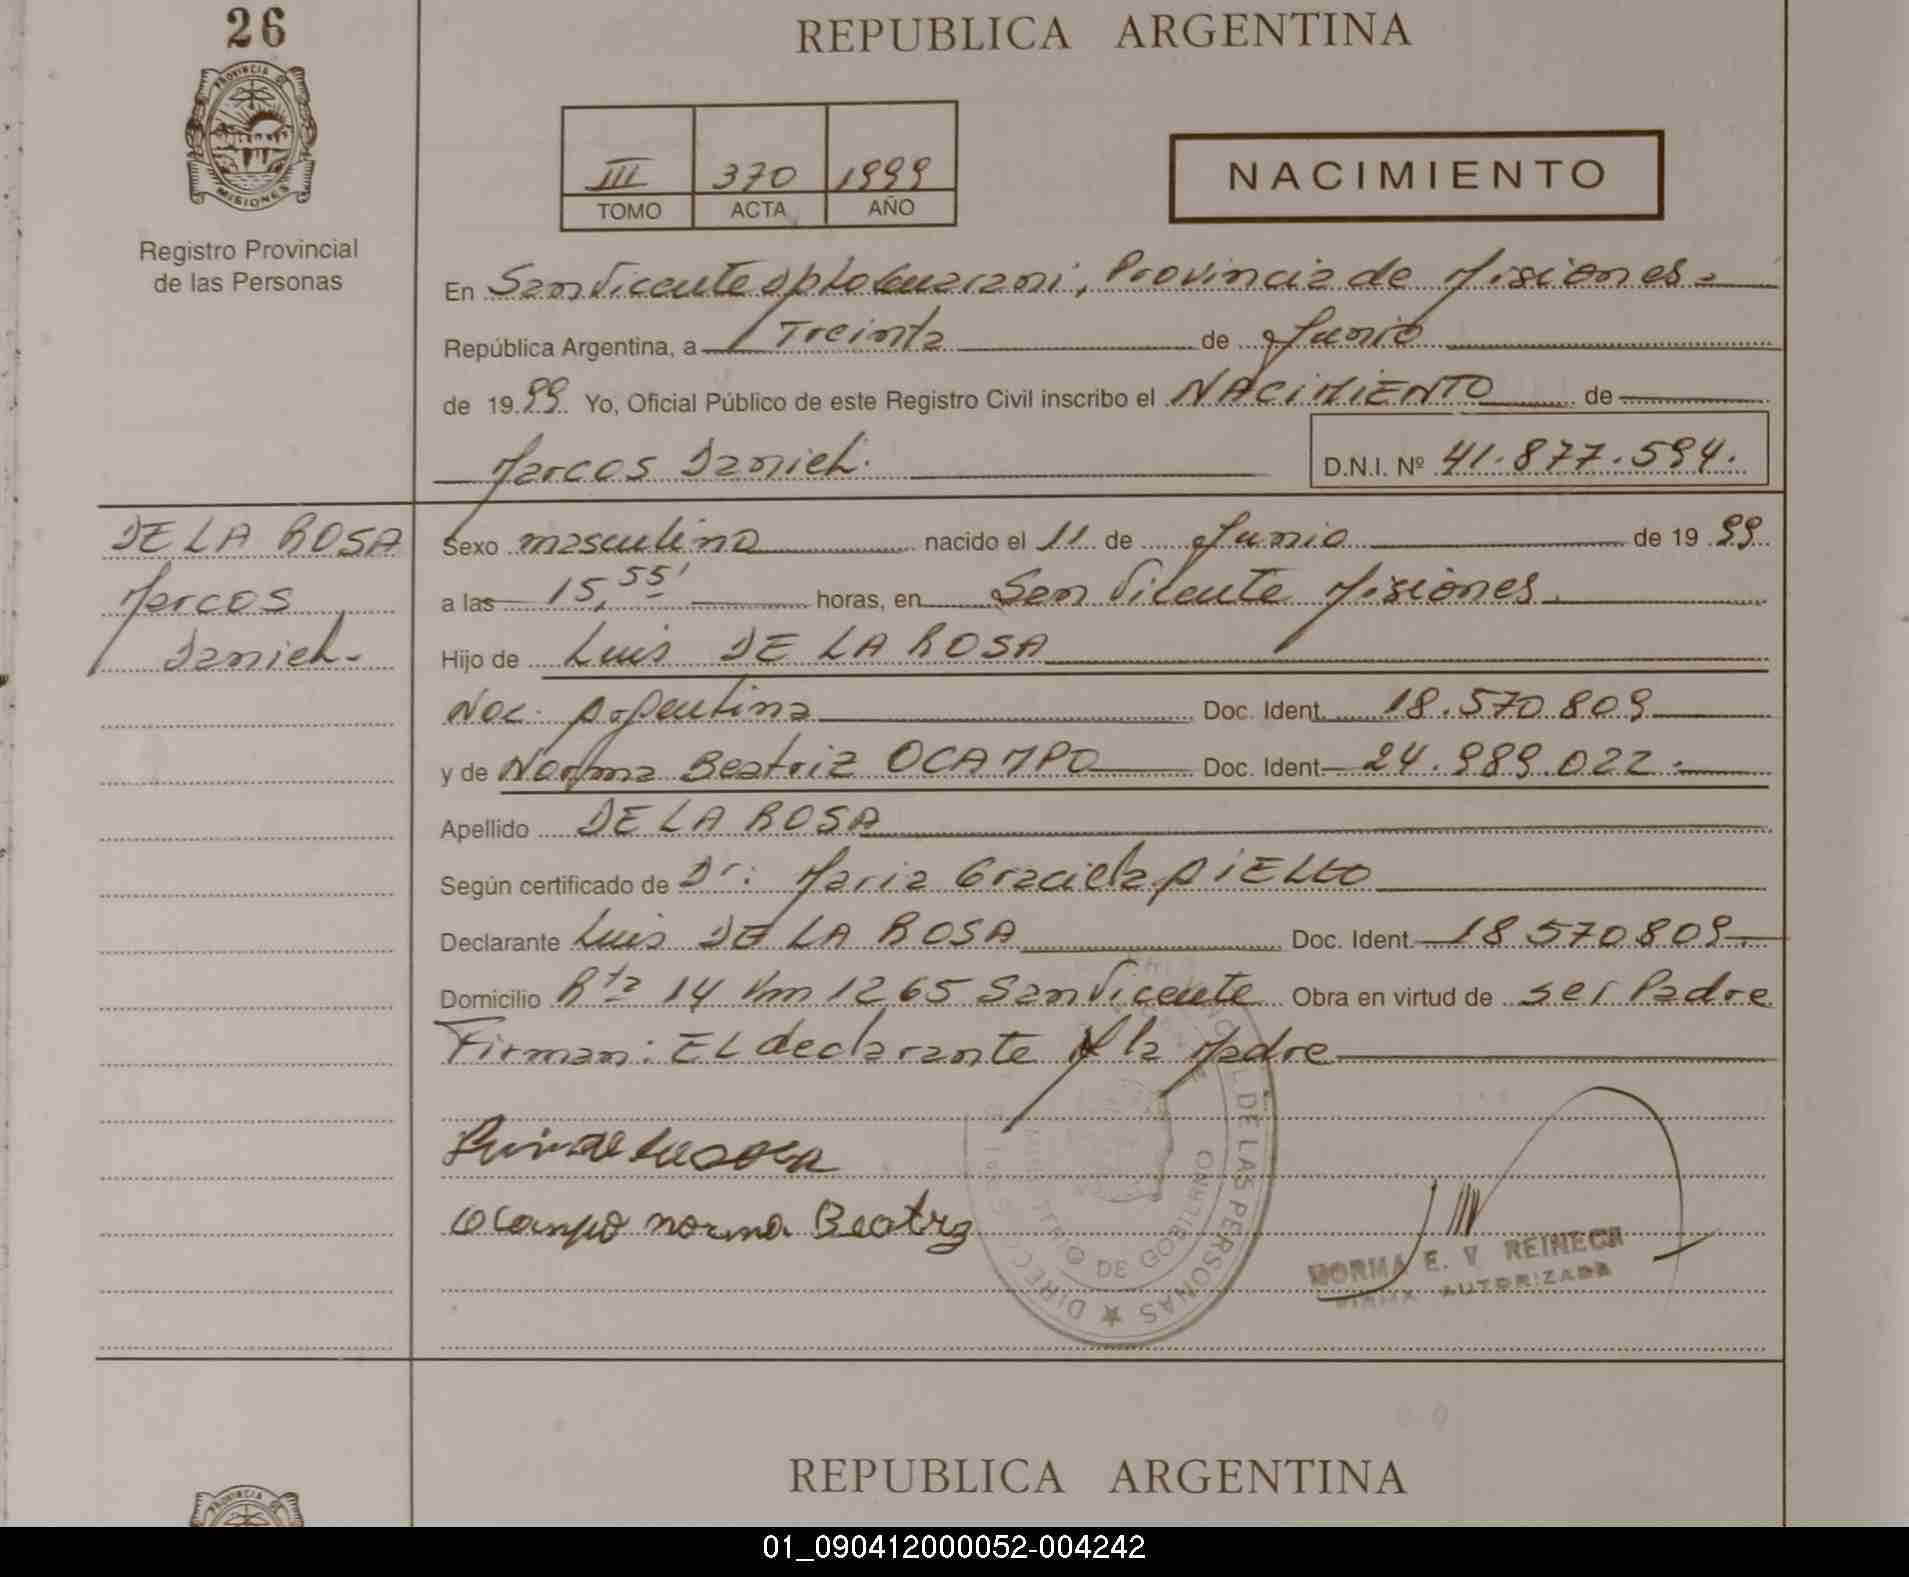 26
REPUBLICA ARGENTINA
PROVINCIA DE
MISIONES
Registro Provincial
de las Personas
III 370 1999
TOMO ACTA AÑO
NACIMIENTO
En San Vicente Dpto Guarani, Provincia de Misiones
República Argentina, a Treinta de Junio
de 1999 Yo, Oficial Público de este Registro Civil inscribo el NACIMIENTO de
Marcos Daniel. D.N.I. Nº 41.877.594.
DE LA ROSA
Marcos
Daniel.
Sexo masculino nacido el 11 de Junio de 1999
a las 15,55' horas, en San Vicente Misiones
Hijo de Luis DE LA ROSA
Nac. Argentina Doc. Ident. 18.570.809
y de Norma Beatriz OCAMPO Doc. Ident 24.989.022.
Apellido DE LA ROSA
Según certificado de Dr: Maria Graciela AIELLO
Declarante Luis DE LA ROSA Doc. Ident. 18 570809.
Domicilio Rta 14 Km 1265 San Vicente Obra en virtud de ser Padre
Firman: EL declarante y la Madre
Ocampo norma Beatriz
DE LAS PERSONAS ★ DIREC
DE GOBIERNO
NORMA E. V. REINECK
FIRMA AUTORIZADA
REPUBLICA ARGENTINA
PROVINCIA DE
01_090412000052-004242